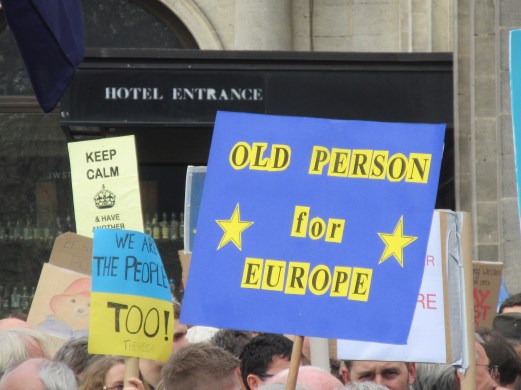 HOTEL ENTRANCE
KEEP
CALM
& HAVE
ANOTHER
OLD PERSON
for
EUROPE
WE ARE
THE PEOPLE
TOO!